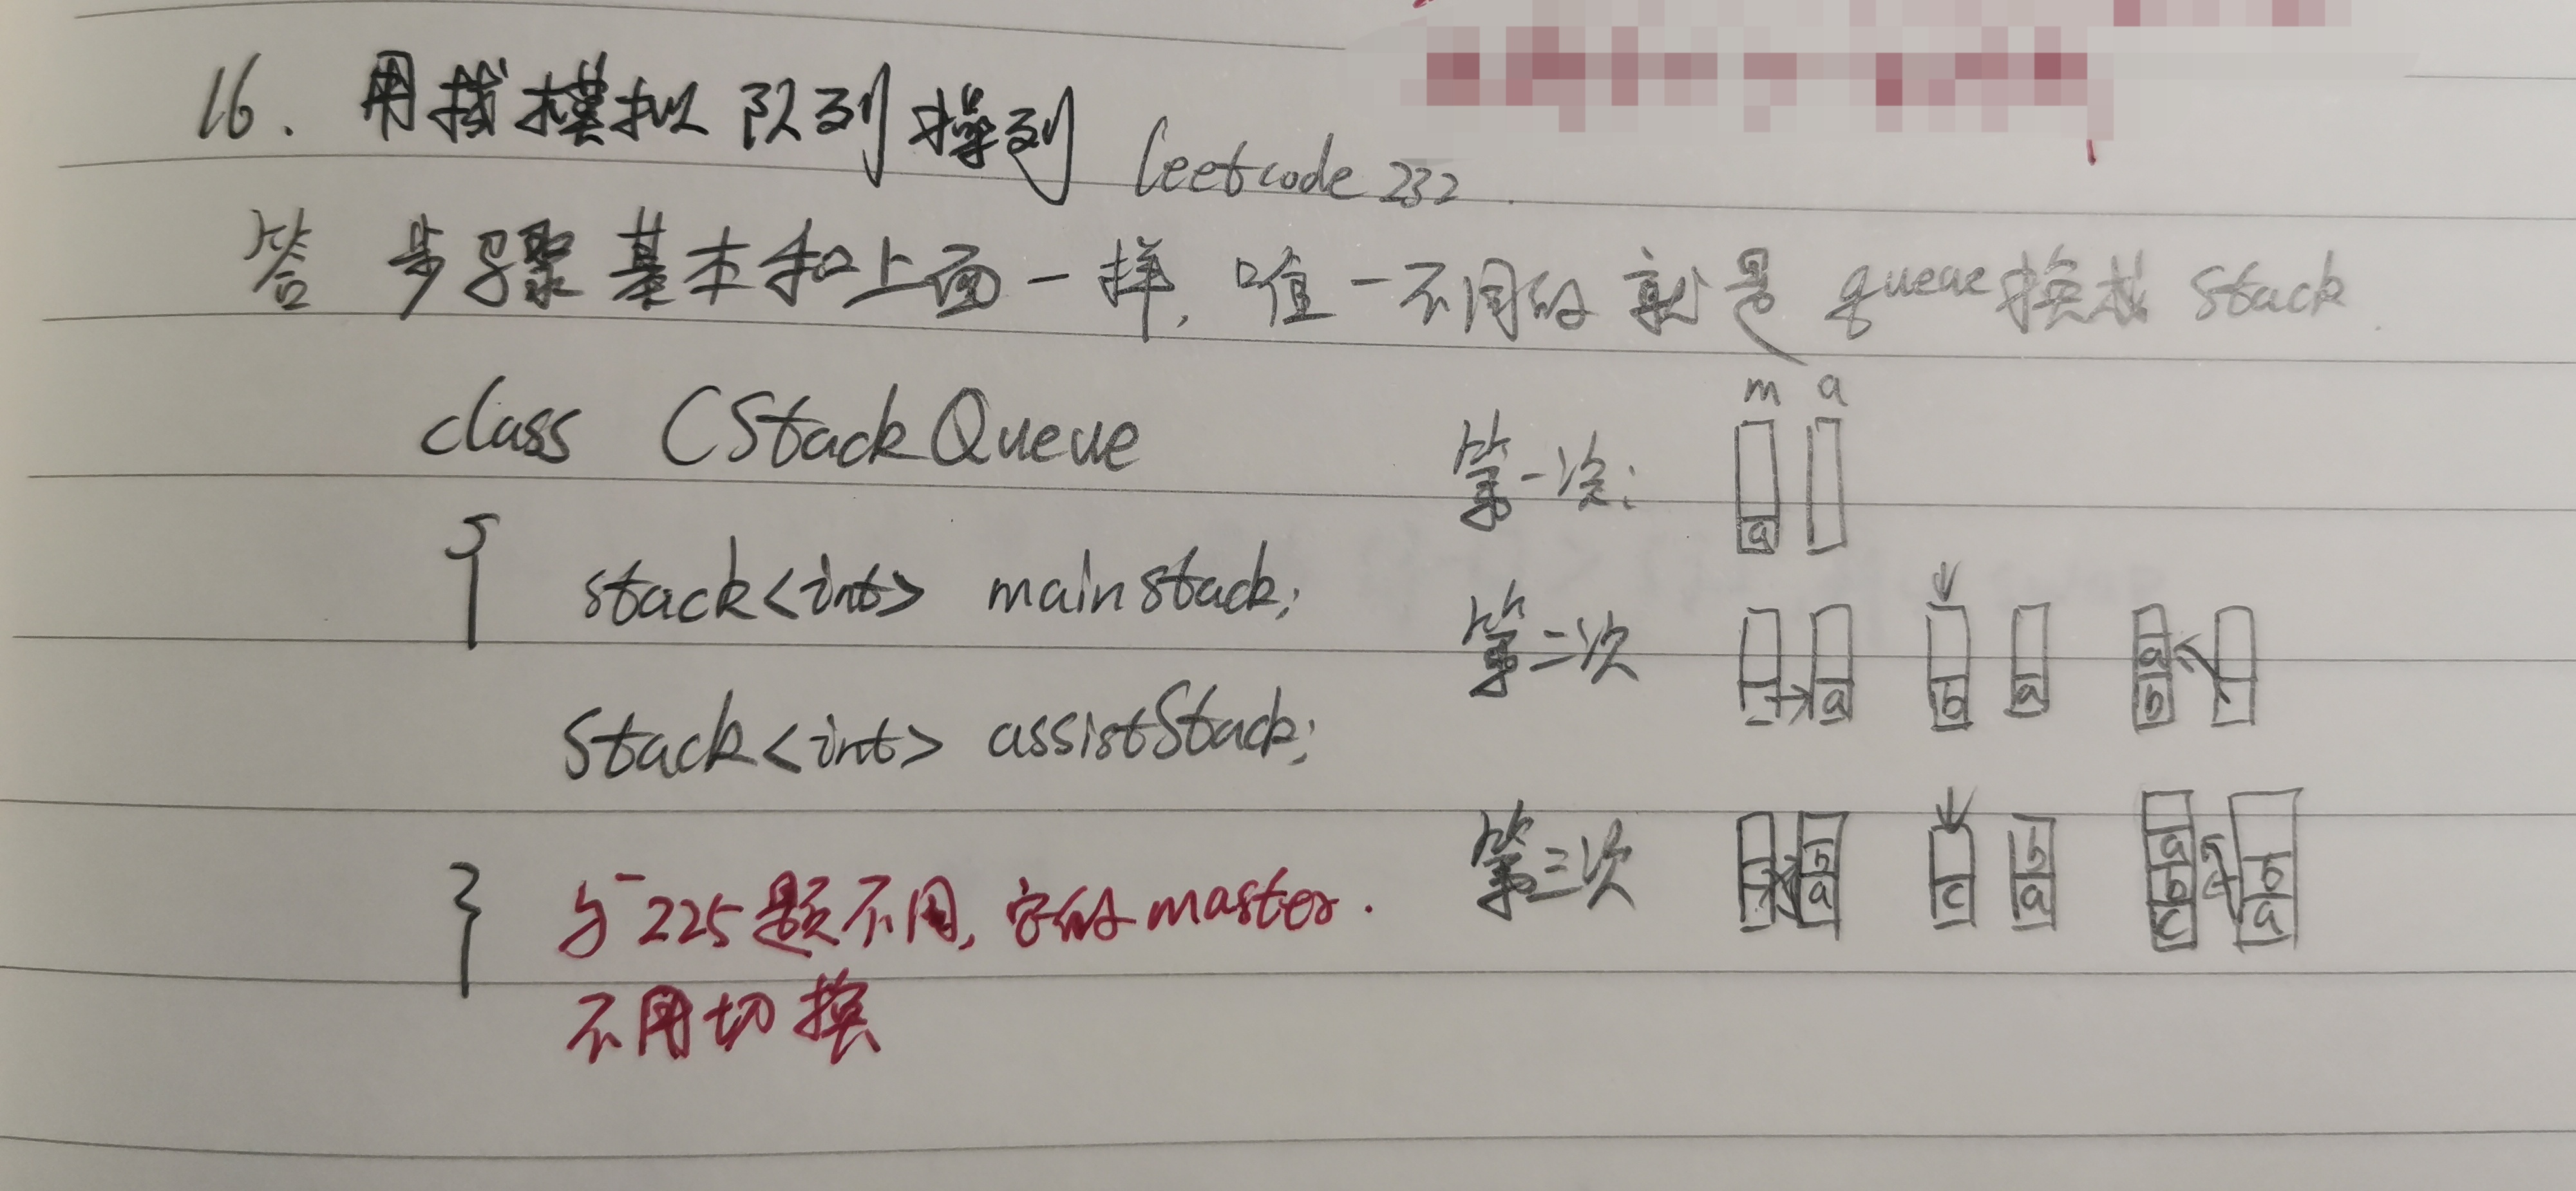 16. 用栈模拟队列操列 leetcode 232.
答 步骤基本和上面一样, 唯一不同的就是 queue换成 stack.
class CStackQueue
{
stack<int> mainstack;
stack<int> assistStack;
}
与225题不同, 它的master.
不用切换
m a
第一次:
a
第二次
a b a a b
第三次
b a c b a a b c b a